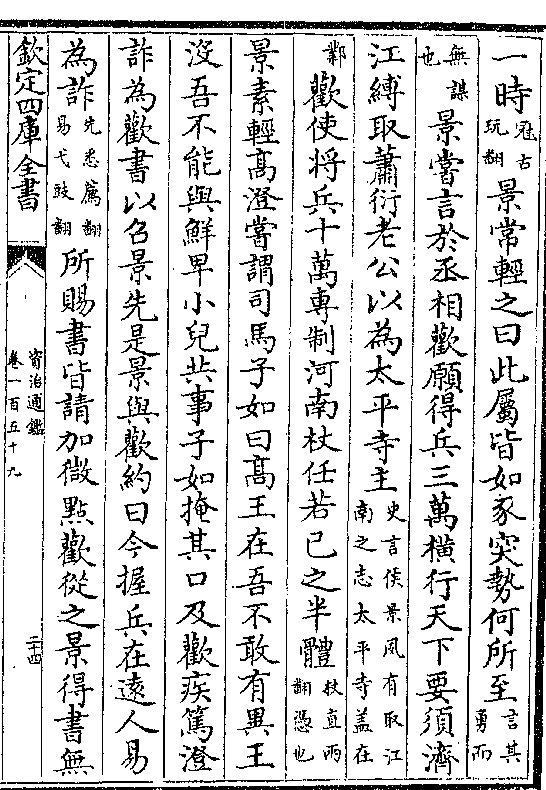 一時冠古玩翻景常輕之曰此屬皆如豕突勢何所至言其勇而
無謀也景嘗言於丞相歡願得兵三萬橫行天下要須濟
江縛取蕭衍老公以為太平寺主史言侯景夙有取江南之志太平寺蓋在
鄴歡使將兵十萬專制河南杖任若已之半體杖直兩翻憑也
景素輕高澄嘗謂司馬子如曰高王在吾不敢有異王
沒吾不能與鮮卑小兒共事子如掩其口及歡疾篤澄
詐為歡書以召景先是景與歡約曰今握兵在遠人易
為詐先悉薦翻易弋豉翻所賜書皆請加微點歡從之景得書無
欽定四庫全書
資治通鑑
卷一百五十九
二十四